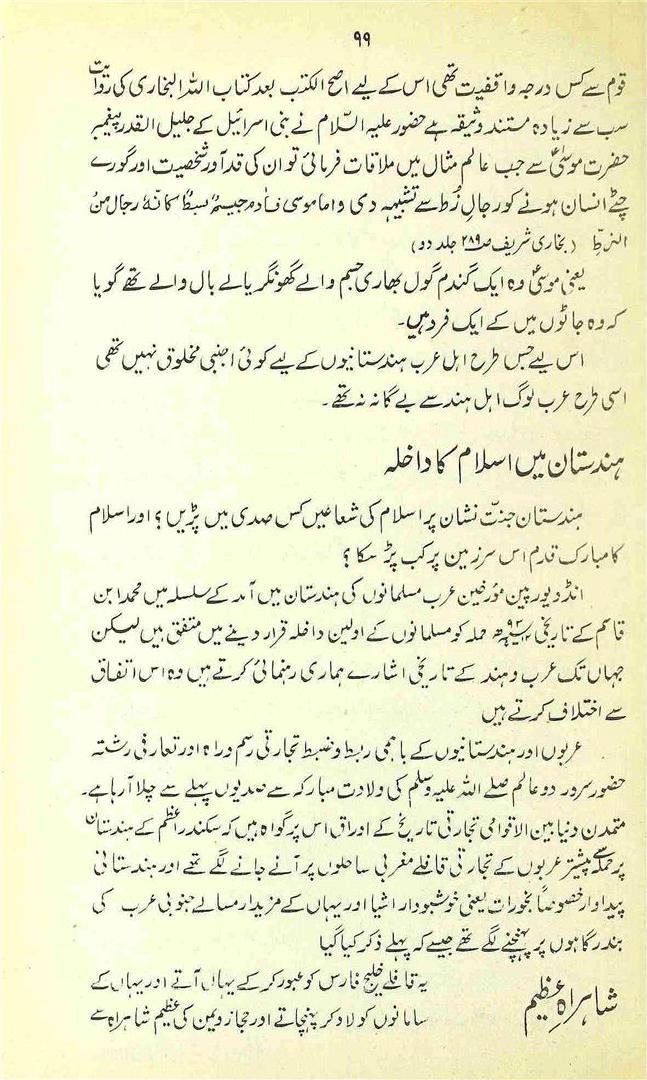 ۹۹
قوم سے کس درجہ واقفیت تھی اس کے لیے اصح الکتب بعد کتاب اللہ البخاری کی روایت
سب سے زیادہ مستند وثیقہ ہے حضور علیہ السّلام نے بنی اسرائیل کے جلیل القدر پیغمبر
حضرت موسیٰؑ سے جب عالم مثال میں ملاقات فرمائی تو ان کی قدآور شخصیت اور گورے
چٹے انسان ہونے کو رجالِ زُط سے تشبیہہ دی واما موسی فادم جسیم سبط کانہ رجال من
الزطِّ (بخاری شریف ص۲۸۹ جلد دو)
یعنی موسیٰؑ وہ ایک گندم گول بھاری جسم والے گھونگریالے بال والے تھے گویا
کہ وہ جاٹوں میں کے ایک فرد ہیں۔
اس لیے جس طرح اہل عرب ہندستانیوں کے لیے کوئی اجنبی مخلوق نہیں تھی
اسی طرح عرب لوگ اہل ہند سے بے گانہ نہ تھے۔
ہندستان میں اسلام کا داخلہ
ہندستان جنّت نشان پر اسلام کی شعاعیں کس صدی میں پڑیں؟ اور اسلام
کا مبارک قدم اس سرزمین پر کب پڑ سکا؟
انڈو یورپین مؤرخین عرب مسلمانوں کی ہندستان میں آمد کے سلسلہ میں محمد ابن
قاسم کے تاریخی ۹۳ھ حملہ کو مسلمانوں کے اولین داخلہ قرار دینے میں متفق ہیں لیکن
جہاں تک عرب و ہند کے تاریخی اشارے ہماری رہنمائی کرتے ہیں وہ اس اتفاق
سے اختلاف کرتے ہیں
عربوں اور ہندستانیوں کے باہمی ربط و ضبط تجارتی رسم و راہ اور تعارفی رشتہ
حضور سرور دو عالم صلے اللہ علیہ وسلم کی ولادت مبارکہ سے صدیوں پہلے سے چلا آرہا ہے۔
متمدن دنیا بین الاقوامی تجارتی تاریخ کے اوراق اس پر گواہ ہیں کہ سکندر اعظم کے ہندستان
پر حملہ سے پیشتر عربوں کے تجارتی قافلے مغربی ساحلوں پر آنے جانے لگے تھے اور ہندستانی
پیداوار خصوصاً بخورات یعنی خوشبودار اشیا اور یہاں کے مزیدار مسالے جنوبی عرب کی
بندرگاہوں پر پہنچنے لگے تھے جیسے کہ پہلے ذکر کیا گیا
شاہراہِ عظیم
یہ قافلے خلیج فارس کو عبور کر کے یہاں آتے اور یہاں کے
سامانوں کو لاد کر پہنچاتے اور حجاز و یمن کی عظیم شاہراہ سے